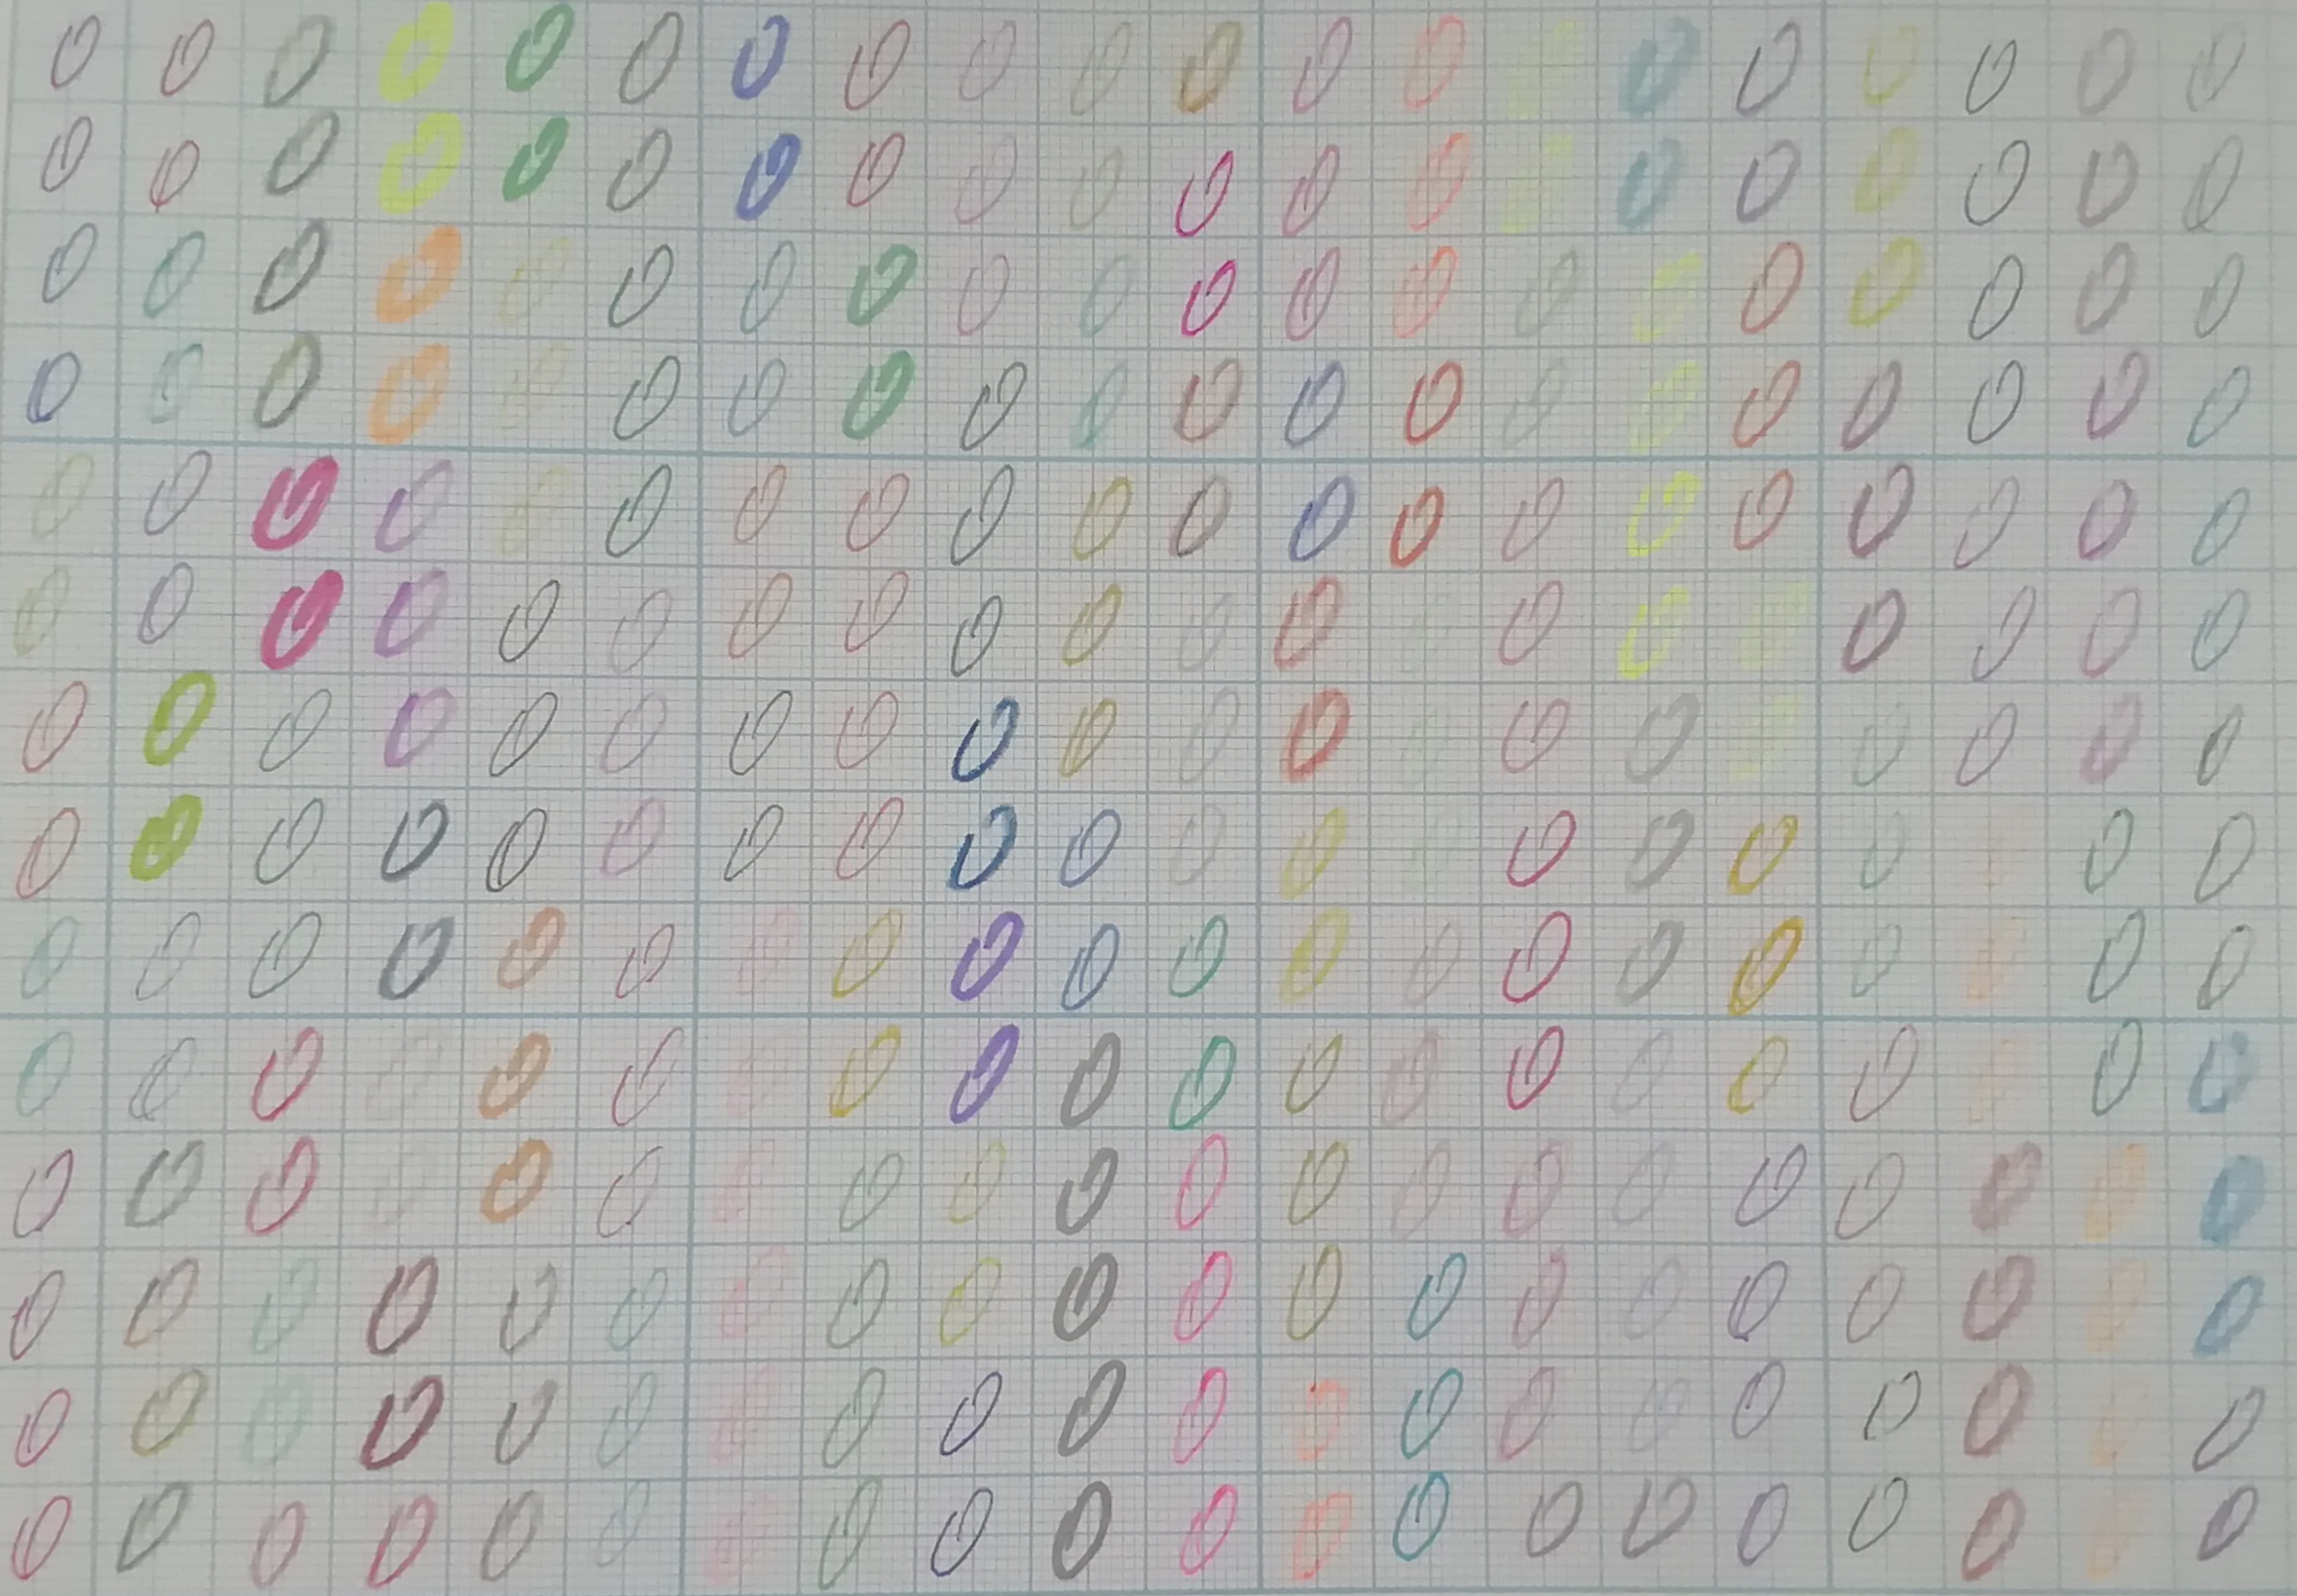 0 0 0 0 0 0 0 0 0 0 0 0 0 0 0 0 0 0 0 0
0 0 0 0 0 0 0 0 0 0 0 0 0 0 0 0 0 0 0 0
0 0 0 0 0 0 0 0 0 0 0 0 0 0 0 0 0 0 0 0
0 0 0 0 0 0 0 0 0 0 0 0 0 0 0 0 0 0 0 0
0 0 0 0 0 0 0 0 0 0 0 0 0 0 0 0 0 0 0 0
0 0 0 0 0 0 0 0 0 0 0 0 0 0 0 0 0 0 0
0 0 0 0 0 0 0 0 0 0 0 0 0 0 0 0 0 0 0
0 0 0 0 0 0 0 0 0 0 0 0 0 0 0 0 0 0
0 0 0 0 0 0 0 0 0 0 0 0 0 0 0 0 0 0 0 0
0 0 0 0 0 0 0 0 0 0 0 0 0 0 0 0 0 0 0 0
0 0 0 0 0 0 0 0 0 0 0 0 0 0 0 0 0 0 0 0
0 0 0 0 0 0 0 0 0 0 0 0 0 0 0 0 0 0 0 0
0 0 0 0 0 0 0 0 0 0 0 0 0 0 0 0 0 0 0 0
0 0 0 0 0 0 0 0 0 0 0 0 0 0 0 0 0 0 0 0